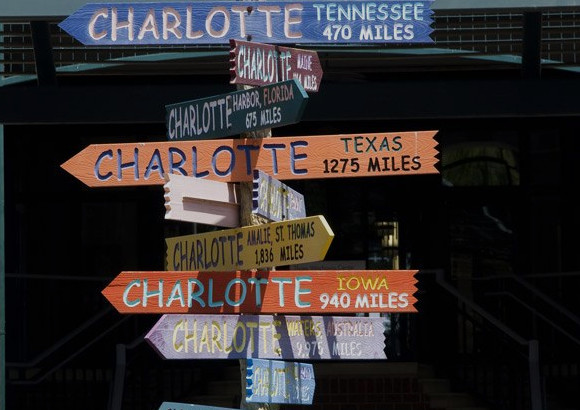 CHARLOTTE TENNESSEE
470 MILES
CHARLOTTE MAINE
MILES
CHARLOTTE HARBOR, FLORIDA
675 MILES
CHARLOTTE TEXAS
1275 MILES
CHARLOTTE
CHARLOTTE AMALIE, ST. THOMAS
1,836 MILES
CHARLOTTE IOWA
940 MILES
CHARLOTTE WATERS, AUSTRALIA
9,975 MILES
CHARLOTTE